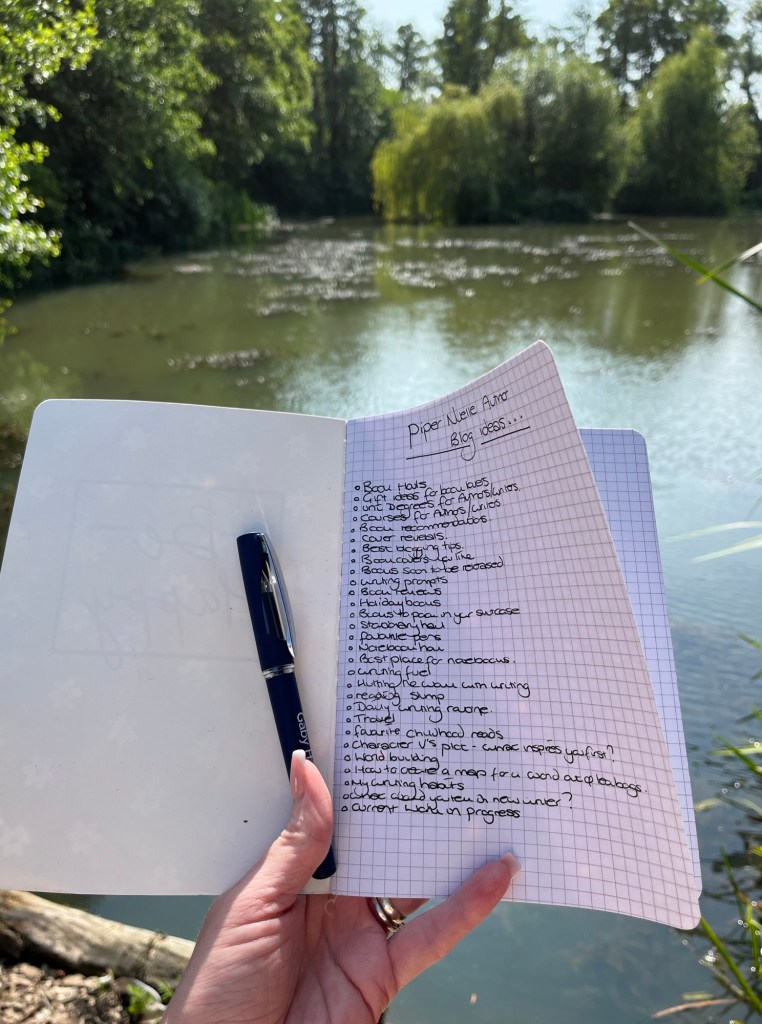 Piper Nelle Author
Blog ideas...
Book Hauls
Gift ideas for book lovers
Uni Degrees for Authors/writers.
Courses for Authors/writers
Book recommendations.
Cover reveals.
Best blogging tips.
Book covers you like
Books soon to be released
writing prompts
Book reviews
Holiday books
Books to pack in your suitcase
Stationery haul
favourite pens
Notebook haul
Best place for notebooks.
writing fuel
Hitting the wall with writing
reading slump
Daily writing routine.
Travel
favorite childhood reads
Character V's plot - what inspires you first?
World building
How to create a map for a world
My writing habits
what would you tell a new writer?
Current work in progress
Gaby